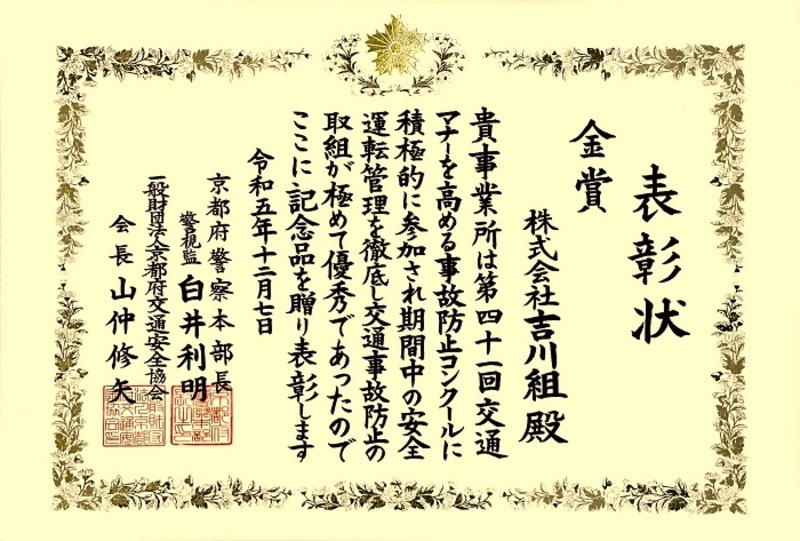 表彰状
金賞
株式会社吉川組 殿
貴事業所は第四十一回交通
マナーを高める事故防止コンクールに
積極的に参加され期間中の安全
運転管理を徹底し交通事故防止の
取組が極めて優秀であったので
ここに記念品を贈り表彰します
令和五年十二月七日
京都府警察本部長
警視監 白井利明
一般財団法人京都府交通安全協会
会長 山仲修矢